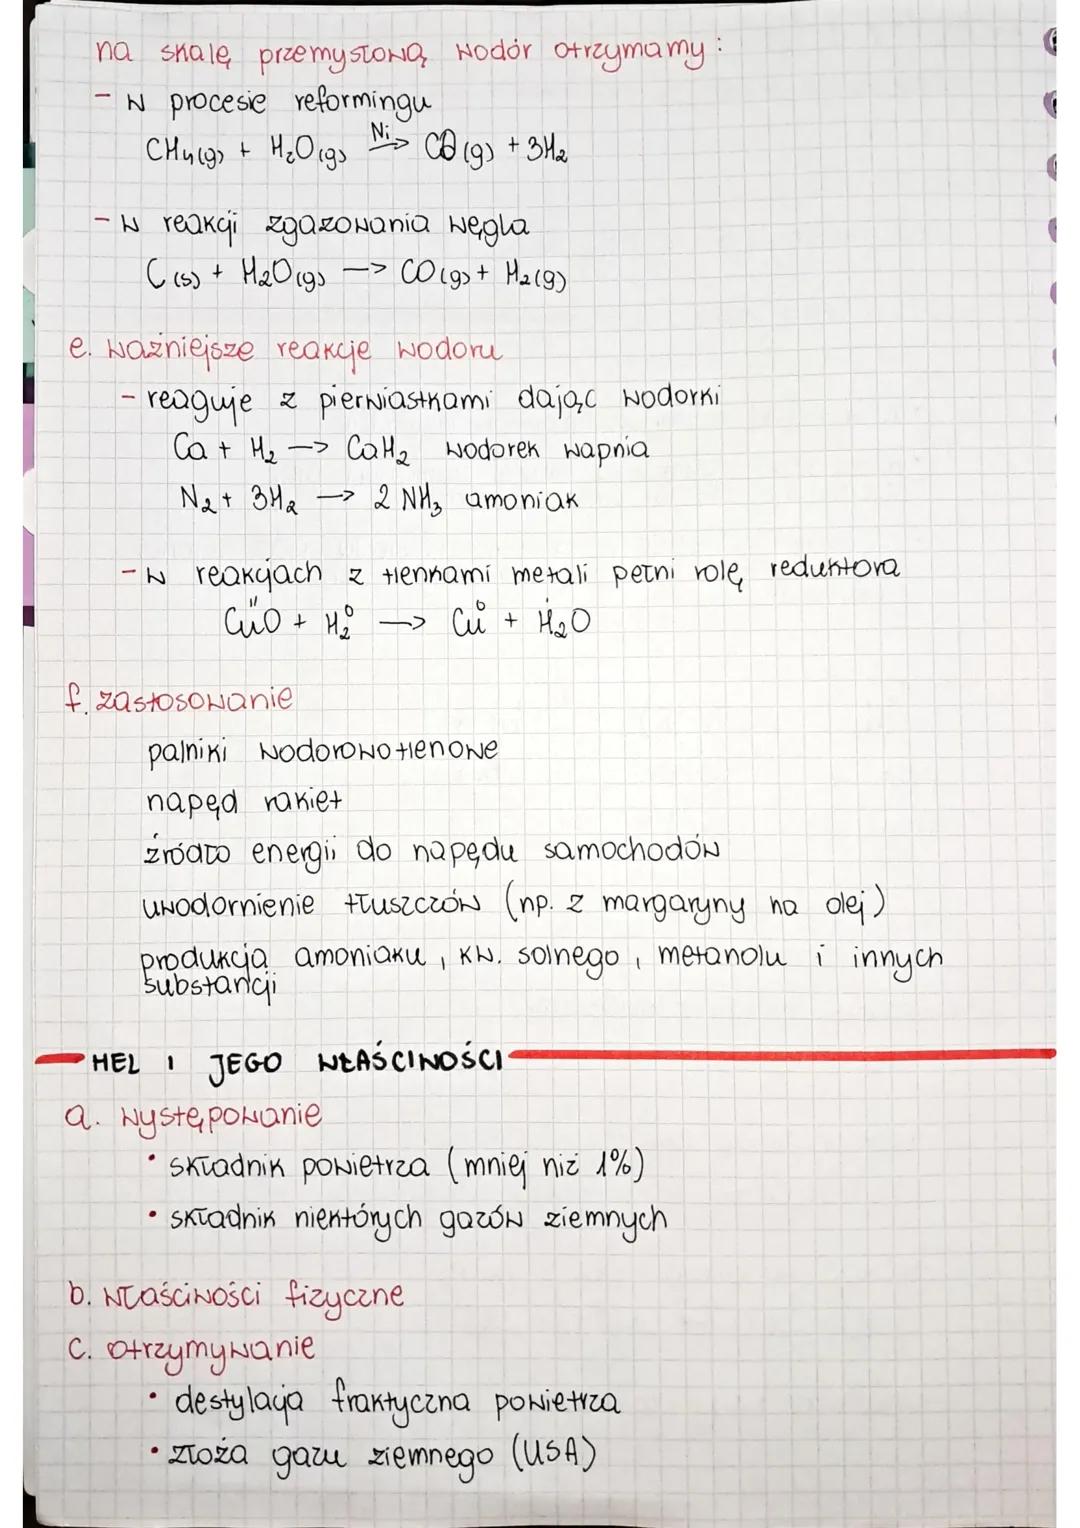 na skalę przemysłową wodór otrzymamy:
- w procesie reformingu
CH4(g) + H2O(g) Ni—> CO(g) + 3H2
- w reakcji zgazowania węgla
C(s) + H2O(g) —> CO(g) + H2(g)
e. ważniejsze reakcje wodoru
- reaguje z pierwiastkami dając wodorki
Ca + H2 —> CaH2 wodorek wapnia
N2 + 3H2 —> 2 NH3 amoniak
- w reakcjach z tlenkami metali pełni rolę reduktora
CuᴵᴵO + H2⁰ —> Cu⁰ + Hᴵ2O
f. zastosowanie
palniki wodorowotlenowe
napęd rakiet
źródło energii do napędu samochodów
uwodornienie tłuszczów (np. z margaryny na olej)
produkcja amoniaku, kw. solnego, metanolu i innych
substancji
HEL I JEGO WŁAŚCIWOŚCI
a. występowanie
• składnik powietrza (mniej niż 1%)
• składnik niektórych gazów ziemnych
b. właściwości fizyczne
c. otrzymywanie
• destylacja fraktyczna powietrza
• złoża gazu ziemnego (USA)